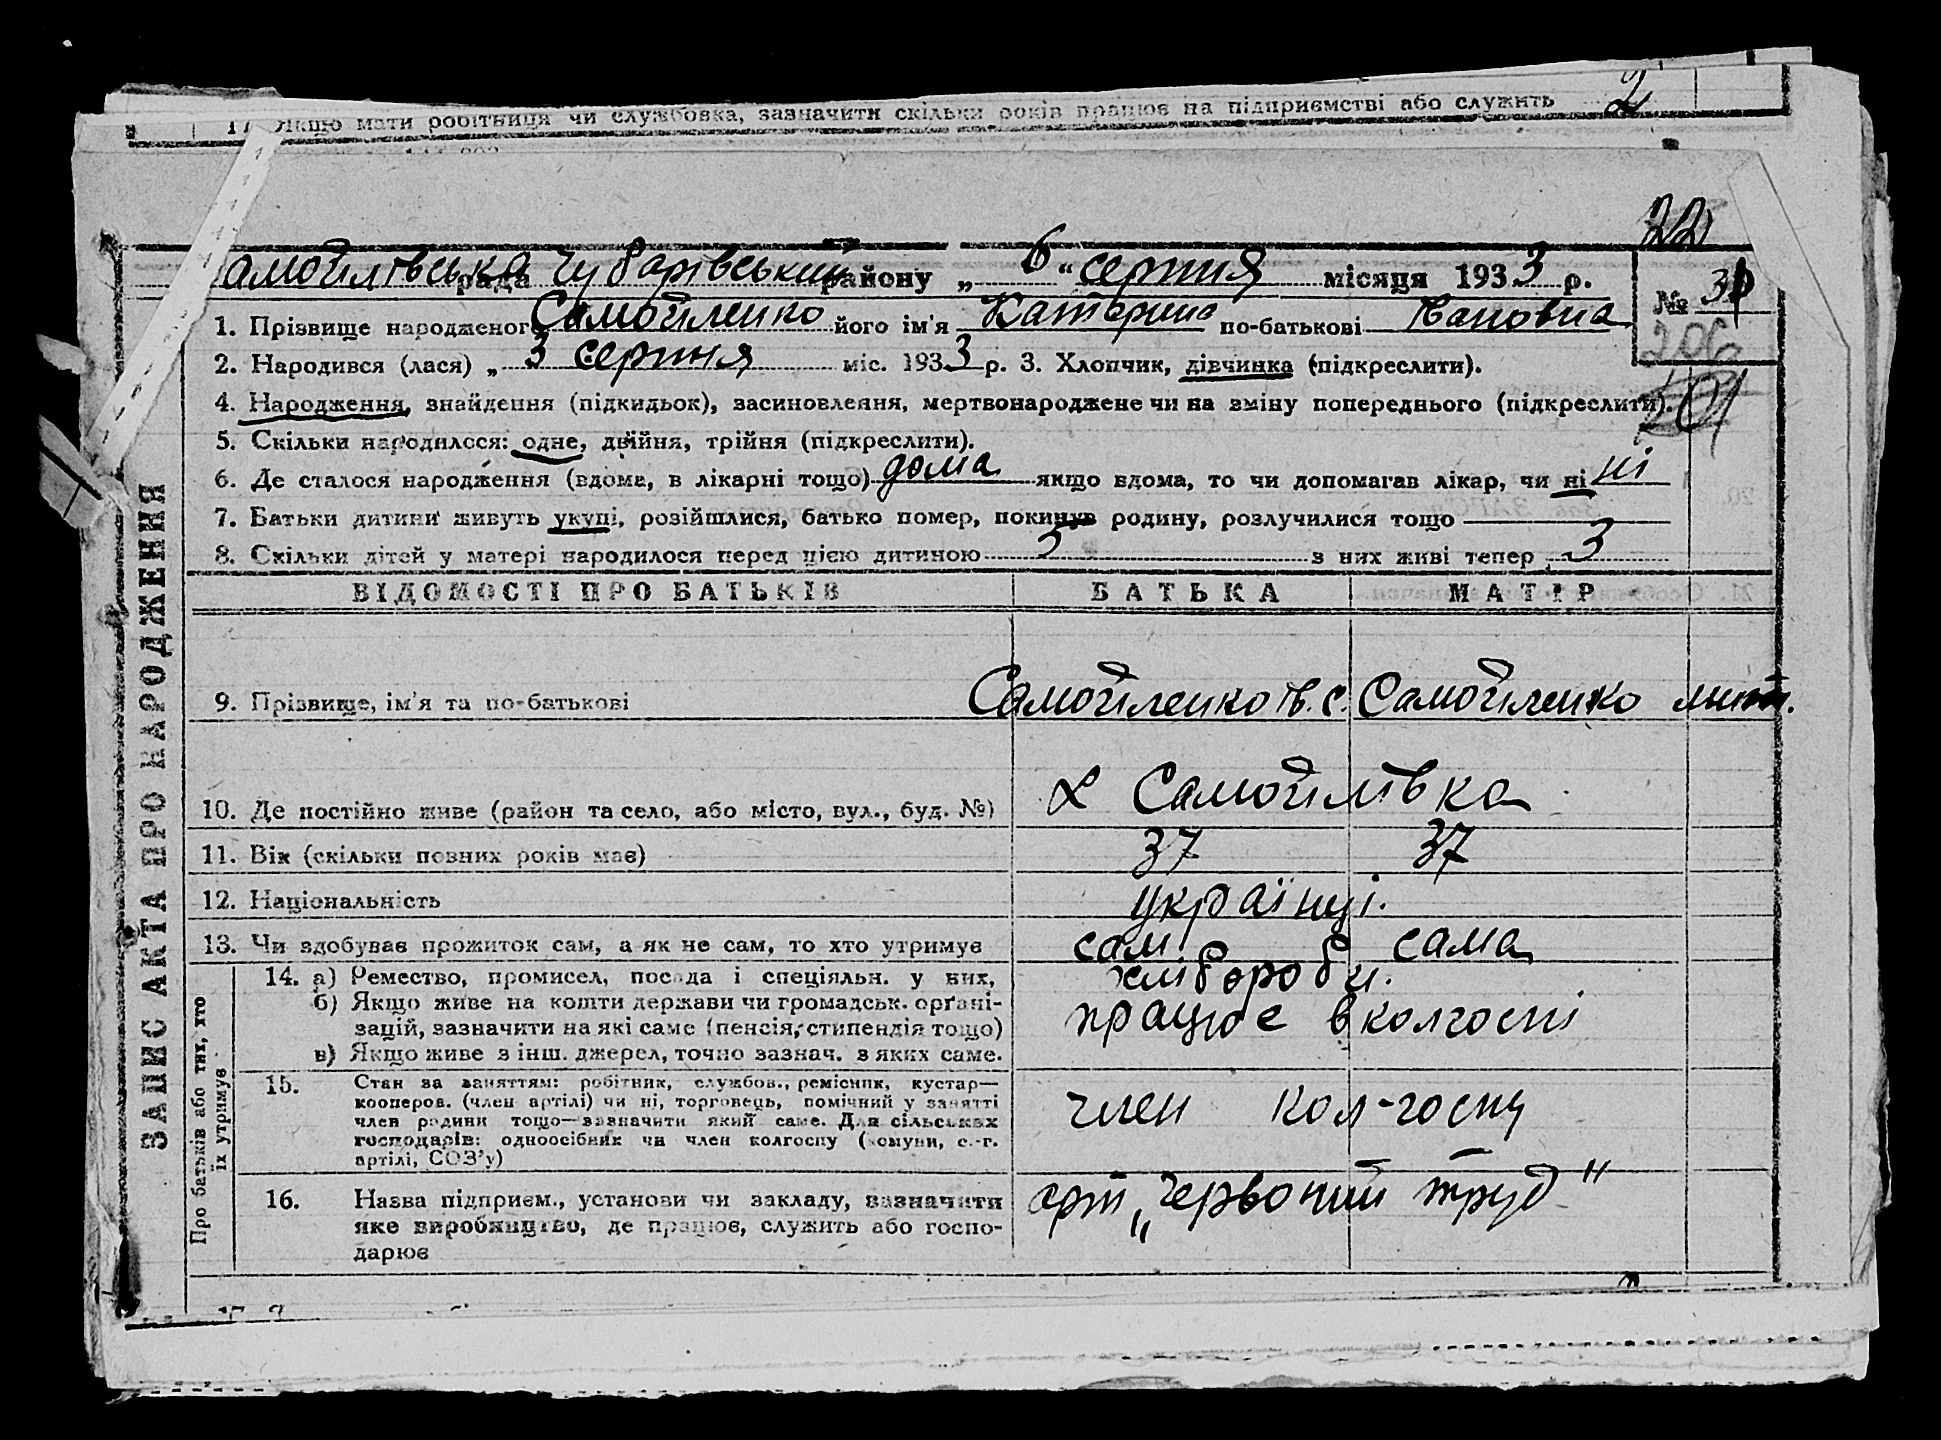 17. Якщо мати робітниця чи службовка, зазначити скільки років працює на підприємстві або служить 2
22
амойлівська рада Чубарівський району „ 6 " серпня місяця 1933 р.
№ 31
206
1. Прізвище народженого Самойленко його ім'я Катерина по-батькові Івановна
2. Народився (лася) „ 3 серпня міс. 1933 р. 3. Хлопчик, дівчинка (підкреслити).
4. Народження, знайдення (підкидьок), засиновлення, мертвонароджене чи на зміну попереднього (підкреслити).
5. Скільки народилося: одне, двійня, трійня (підкреслити).
6. Де сталося народження (вдома, в лікарні тощо) дома якщо вдома, то чи допомагав лікар, чи ні ні
7. Батьки дитини живуть укупі, розійшлися, батько помер, покинув родину, розлучилися тощо
8. Скільки дітей у матері народилося перед цією дитиною 5 з них живі тепер 3
ВІДОМОСТІ ПРО БАТЬКІВ БАТЬКА МАТІР
9. Прізвище, ім'я та по-батькові Самойленко Ів. С. Самойленко
10. Де постійно живе (район та село, або місто, вул., буд. №) с Самойлівка
11. Вік (скільки повних років має) 37 37
12. Національність українці.
13. Чи здобуває прожиток сам, а як не сам, то хто утримує сам сама
14. а) Ремество, промисел, посада і спеціяльн. у них, хлібороби.
б) Якщо живе на кошти держави чи громадськ. орґані-
зацій, зазначити на які саме (пенсія, стипендія тощо) працює в колгоспі
в) Якщо живе з інш. джерел, точно зазнач. з яких саме.
15. Стан за заняттям: робітник, службов., ремісник, кустар—
кооперов. (член артілі) чи ні, торговець, помічний у занятті
член родини тощо—зазначити який саме. Для сільських член кол-госпу
господарів: одноосібник чи член колгоспу (комуни, с.-г.
артілі, СОЗ'у)
16. Назва підприєм., установи чи закладу, зазначити арт „Червоний труд"
яке виробництво, де працює, служить або госпо-
дарює
ЗАПИС АКТА ПРО НАРОДЖЕННЯ
Про батьків або тих, хто
їх утримує